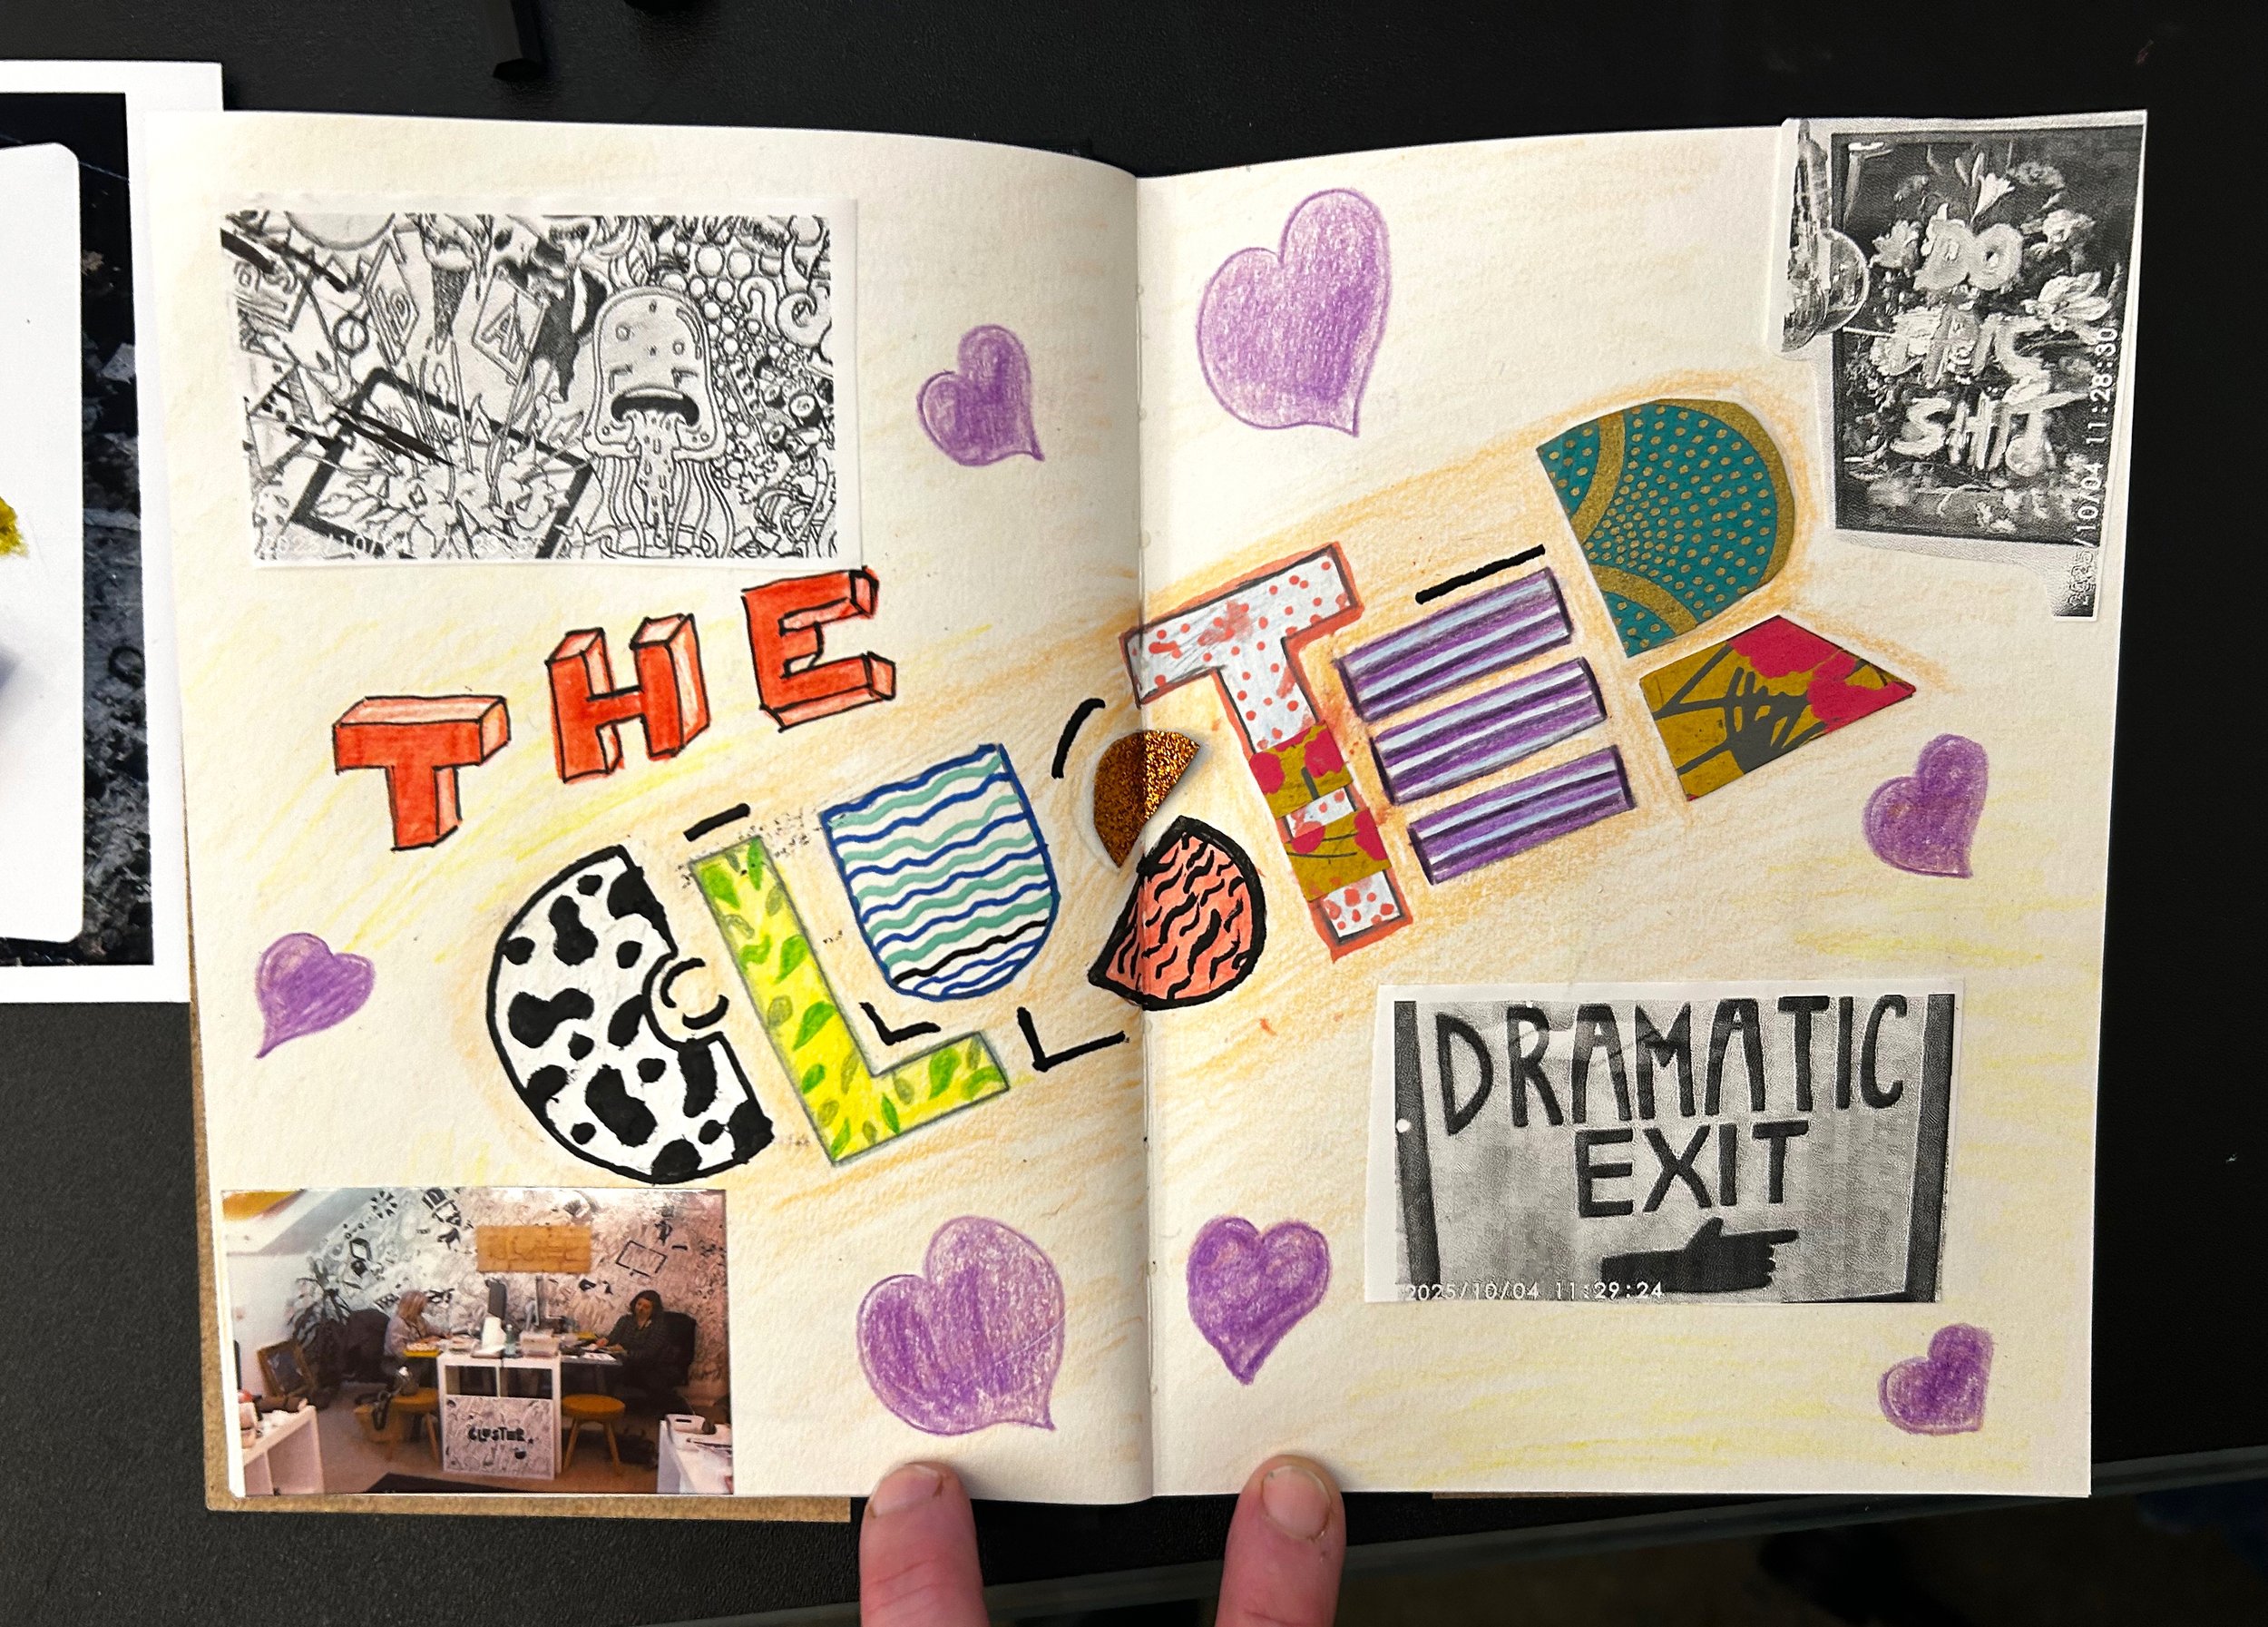 THE
CLUSTER
DO
THIS
SHIT
2025/10/04 11:28:30
DRAMATIC
EXIT
2025/10/04 11:29:24
CLUSTER